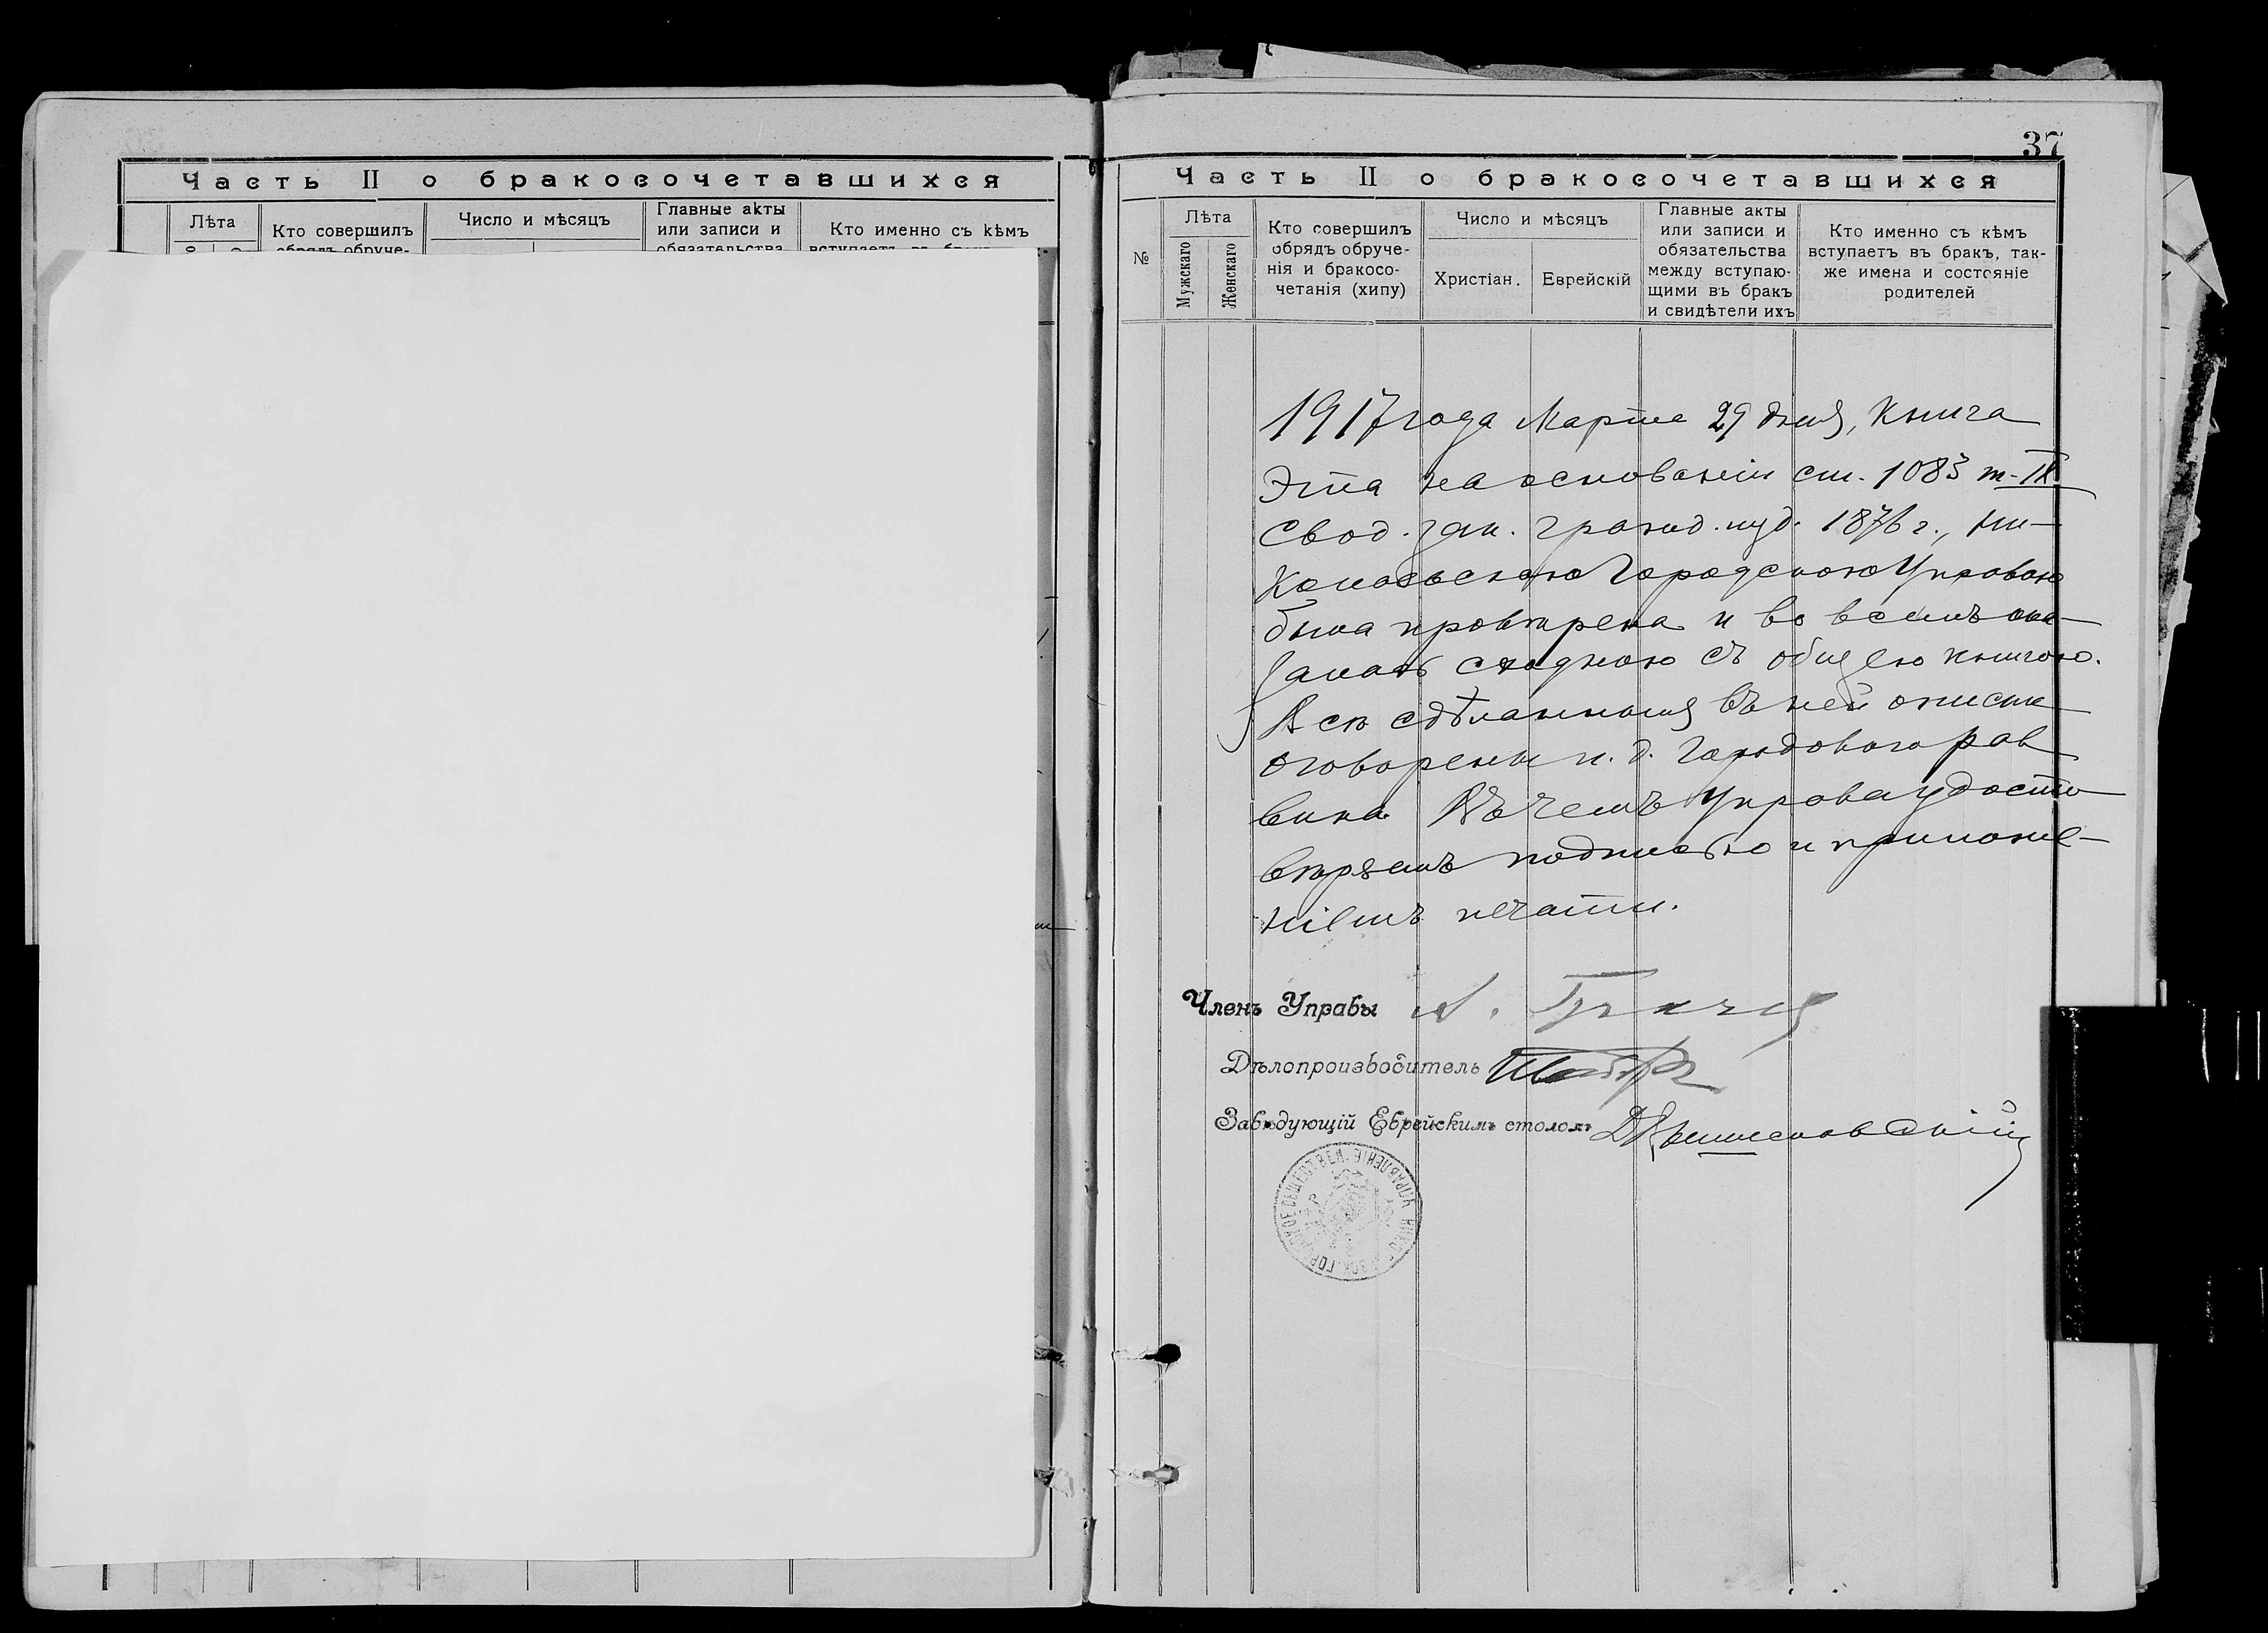 Часть II о бракосочетавшихся
Лѣта
Кто совершилъ
обрядъ обруче-
Число и мѣсяцъ
Главные акты
или записи и
обязательства
Кто именно съ кѣмъ
вступаетъ въ бракъ
37
Часть II о бракосочетавшихся
№
Лѣта
Мужскаго
Женскаго
Кто совершилъ
обрядъ обруче-
нія и бракосо-
четанія (хипу)
Число и мѣсяцъ
Христіан.
Еврейскій
Главные акты
или записи и
обязательства
между вступаю-
щими въ бракъ
и свидѣтели ихъ
Кто именно съ кѣмъ
вступаетъ въ бракъ, так-
же имена и состояніе
родителей
1917 года Марта 29 дня, Книга
Эта на основаніи ст. 1083 т. IX
Свод. зак. гражд. изд. 1876 г., Ни-
колаевскою Городскою Управою
была провѣрена и во всемъ ока-
залась сходною съ общею книгою.
Всѣ сдѣланныя въ ней описки
оговорены и. д. Городового рав
вина. Въ чемъ Управа удосто
вѣряетъ подписью и приложе-
ніемъ печати.
Членъ Управы
Дѣлопроизводитель
Завѣдующій Еврейскимъ столомъ
НИКОЛАЕВСК. ГОРОДСКОЕ ОБЩЕСТВЕН. УПРАВЛЕНІЕ